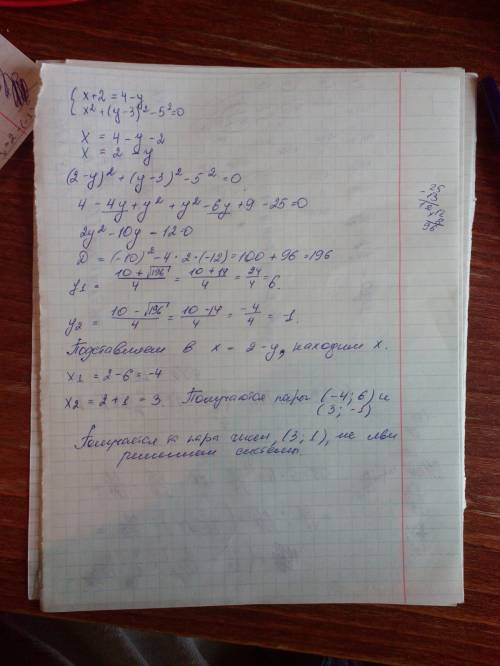 x+2=4-y
x²+(y-3)²-5²=0
x = 4-y-2
x = 2-y
(2-y)²+(y-3)²-5²=0
4-4y+y²+y²-6y+9-25=0
2y²-10y-12=0
D = (-10)²-4·2·(-12)=100+96=196
y1 = (10+√196)/4 = (10+14)/4 = 24/4 = 6.
y2 = (10-√196)/4 = (10-14)/4 = -4/4 = -1.
Подставляем в x = 2-y, находим x.
x1 = 2-6=-4
x2 = 2+1 = 3. Получаются пары (-4; 6) и
(3; -1)
Получается пары чисел, (3; 1), не
решением системы.
96